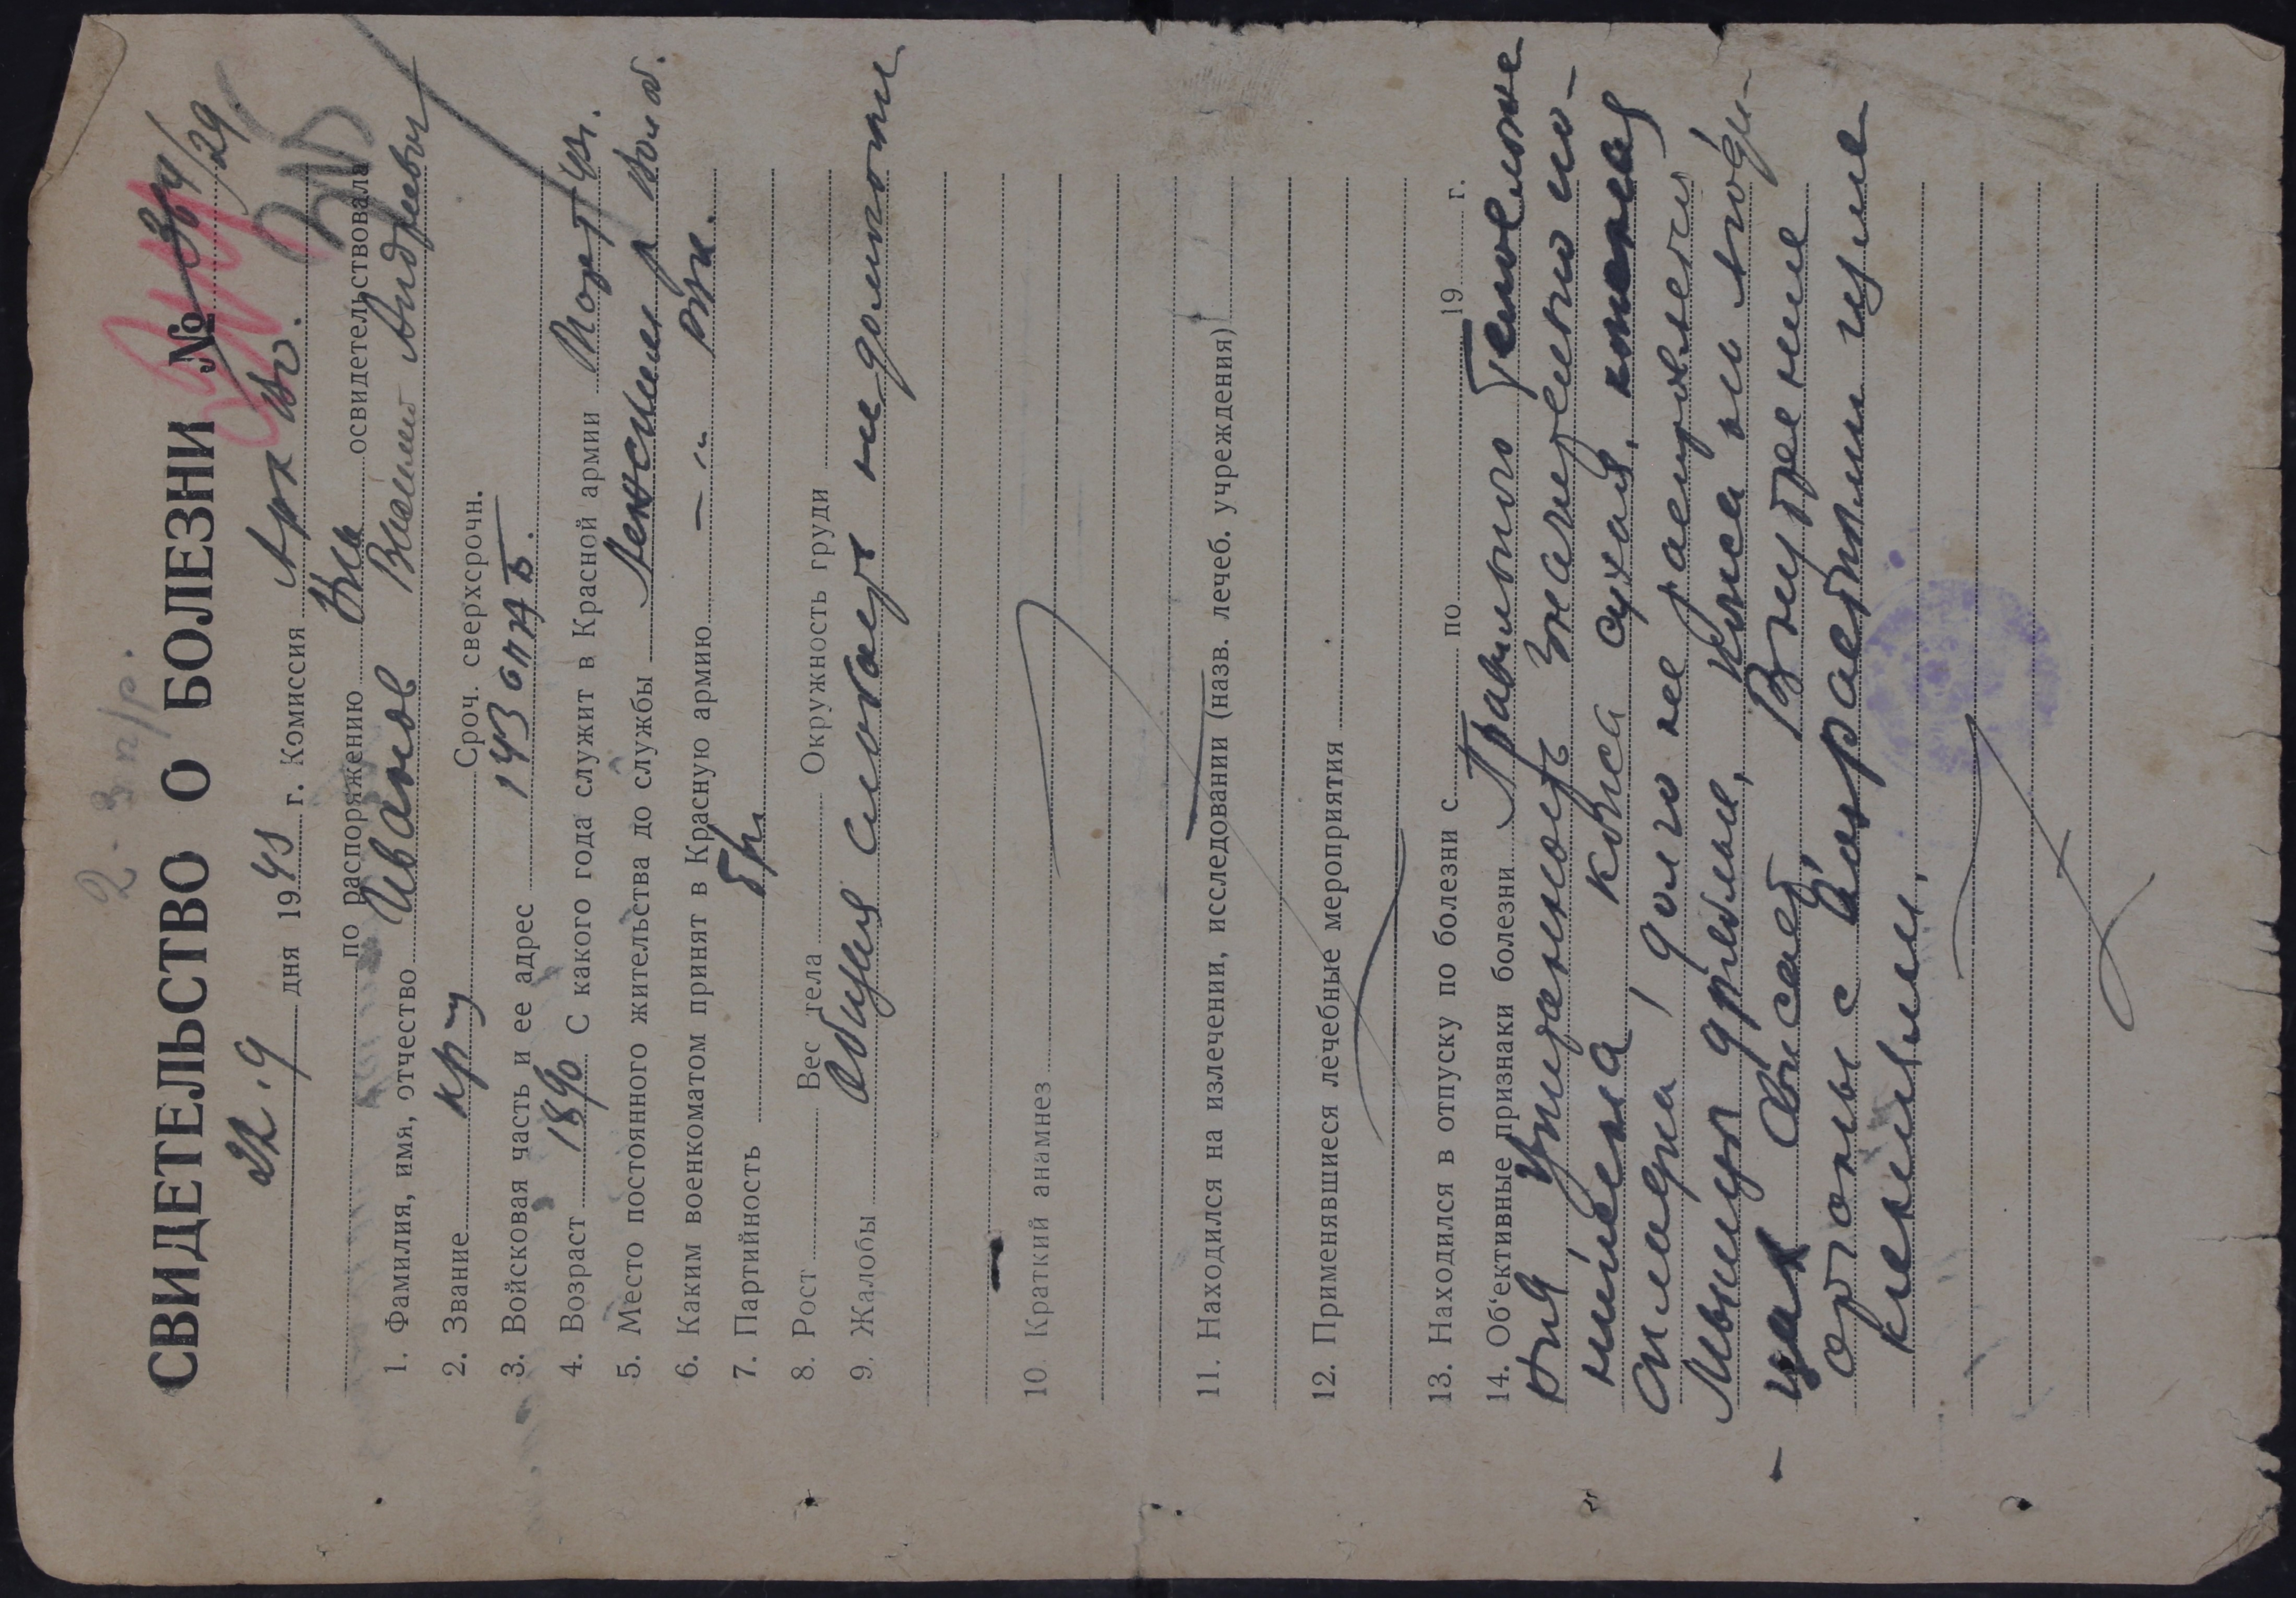 2-3 п/р.
СВИДЕТЕЛЬСТВО О БОЛЕЗНИ № 364/29
22.9 дня 1943 г. Комиссия Арх Во.
по распоряжению Вка освидетельствовала
1. Фамилия, имя, отчество Иванов Василий Андреевич
2. Звание кр-ц Сроч. сверхсрочн.
3. Войсковая часть и ее адрес 143
4. Возраст 1890 С какого года служит в Красной армии
5. Место постоянного жительства до службы
6. Каким военкоматом принят в Красную армию — „ — РВК.
7. Партийность б/п
8. Рост Вес тела Окружность груди
9. Жалобы Общая слабость недомогание
10 Краткий анамнез
11. Находился на излечении, исследовании (назв. лечеб. учреждения)
12. Применявшиеся лечебные мероприятия
13. Находился в отпуску по болезни с по 19 г.
14. Об‘ективные признаки болезни Правильного Телосложе
ния Упитанность значительно по-
нижена кожа сухая,
складка долго не расправляется
Мышцы дряблые, кожа на ягоди-
цах висает, Внутренние
органы с возрастными изме
нениями.